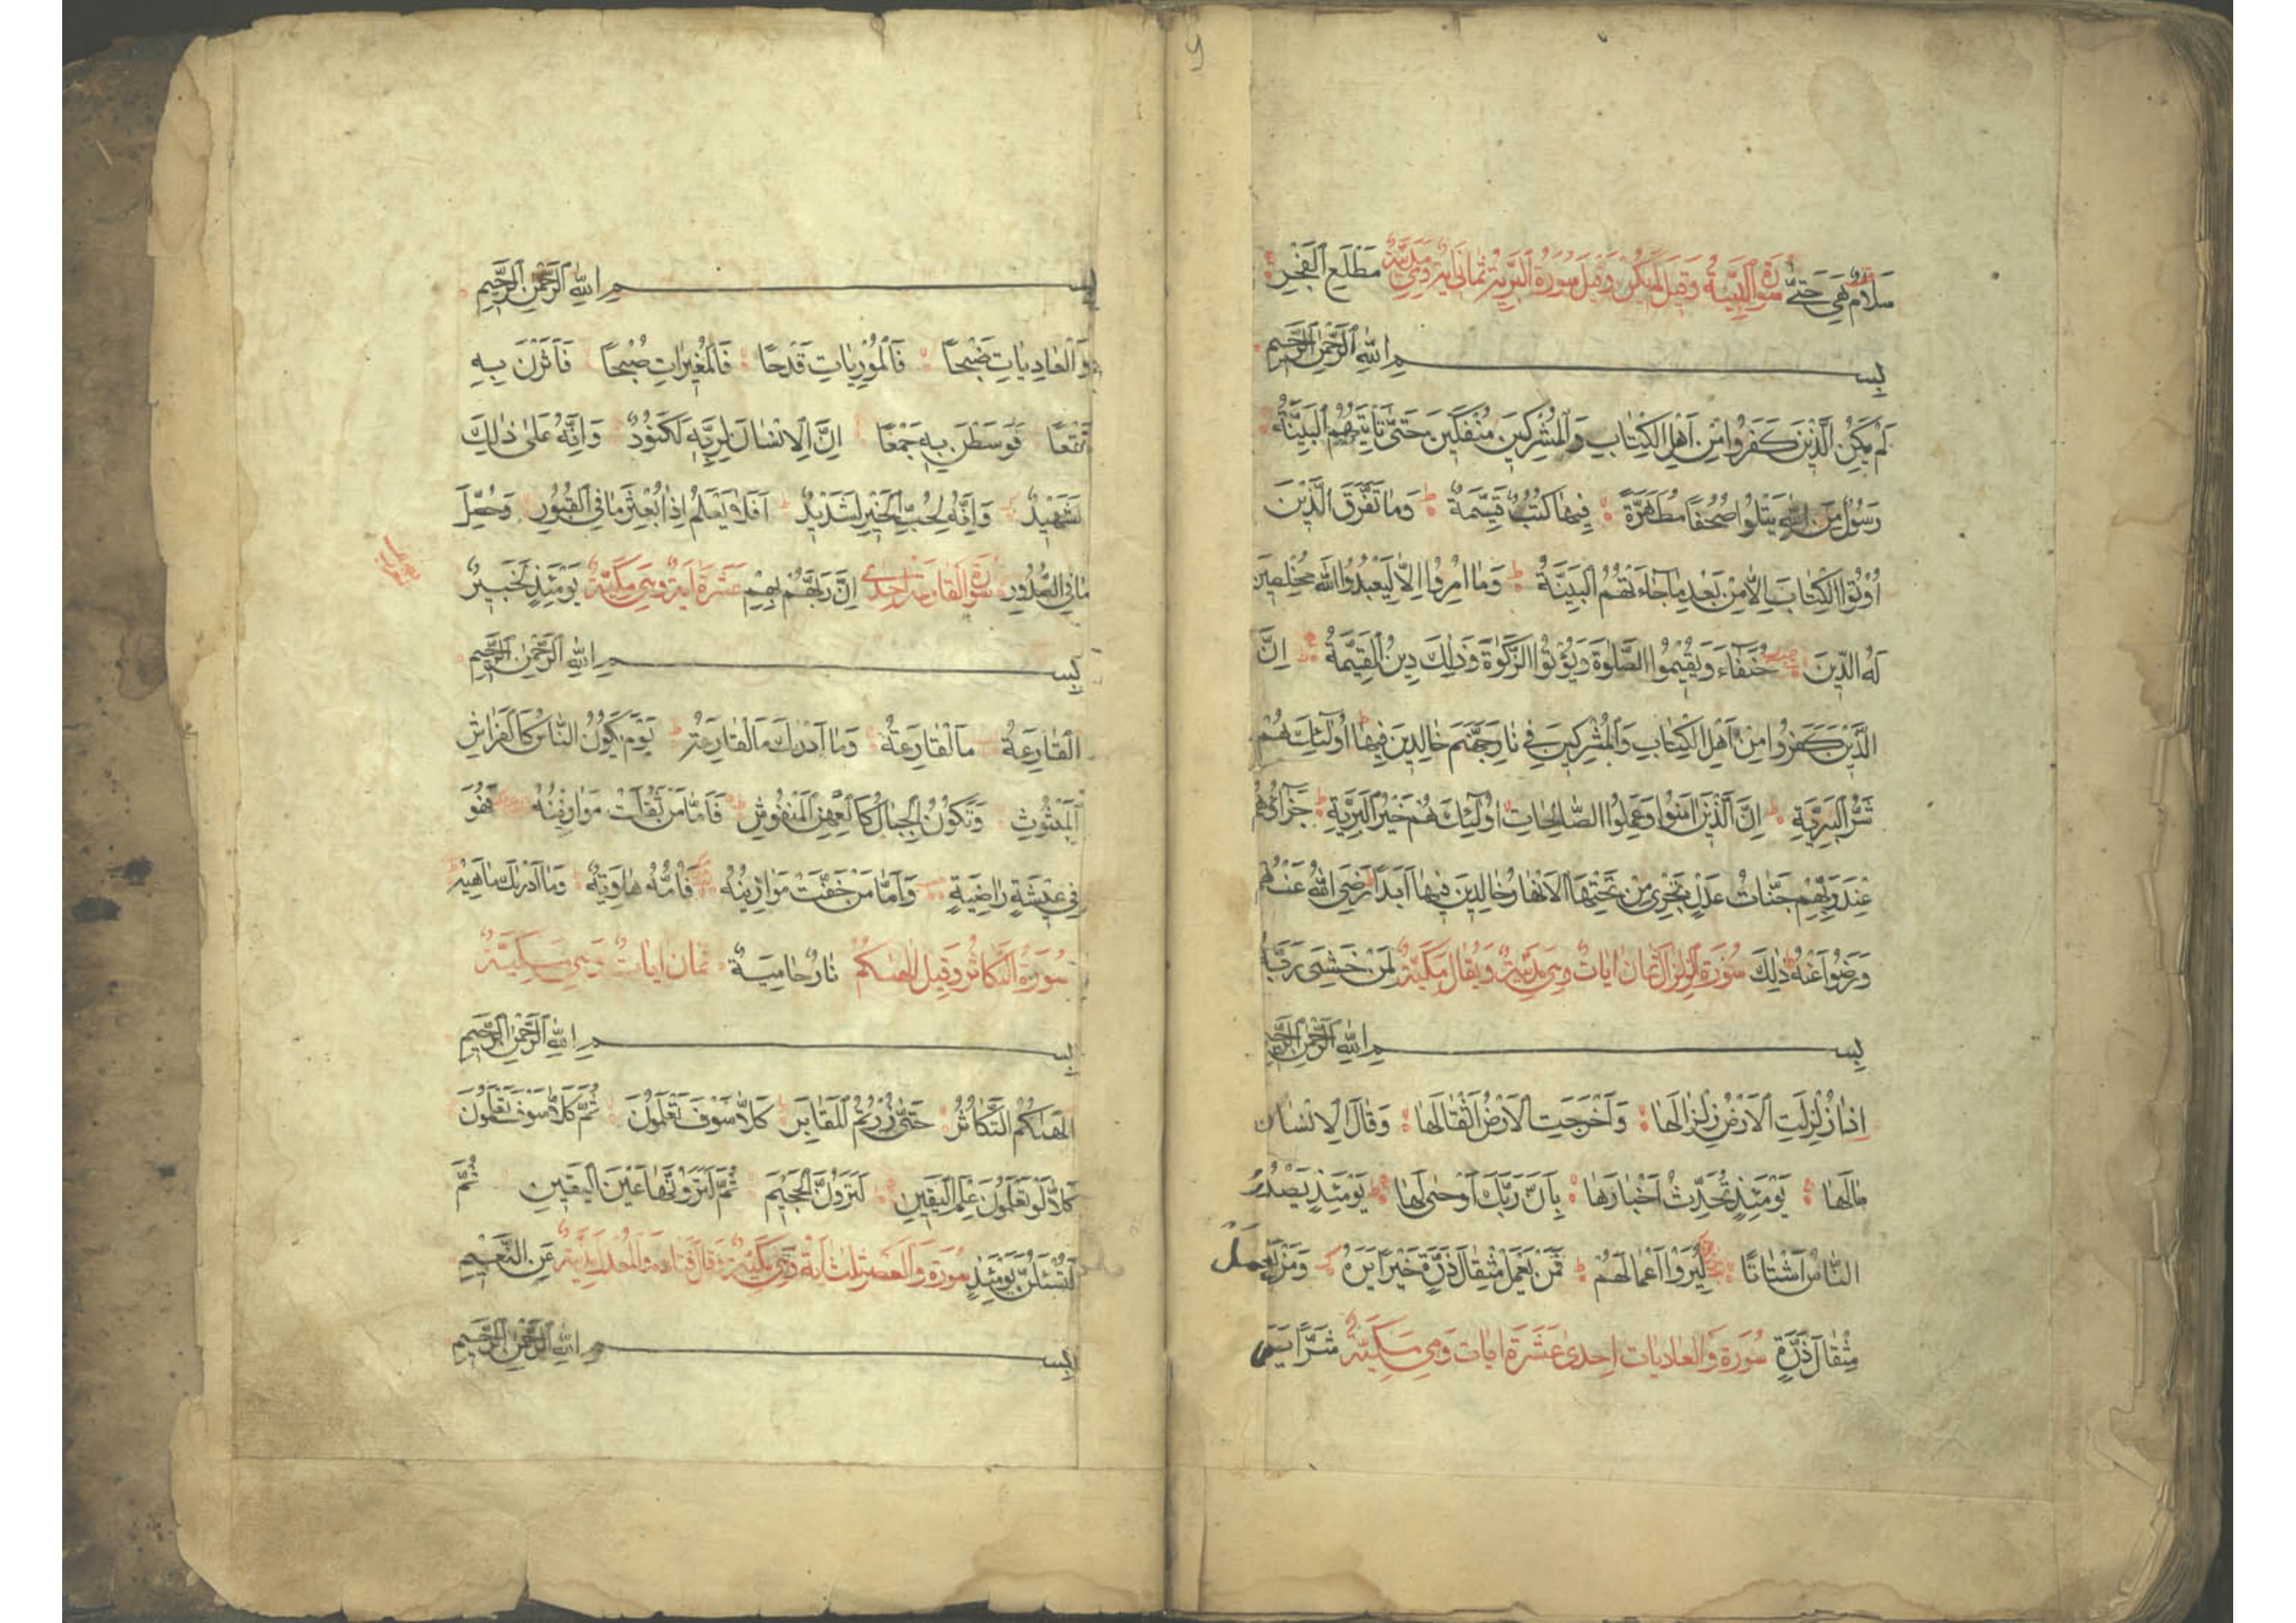 سَلَامٌ هِيَ حَتَّى سورة البينة وقيل لم يكن وقيل سورة البرية ثماني اية وهي مدنية مَطْلَعِ الْفَجْرِ
بِسْمِ اللهِ الرَّحْمٰنِ الرَّحِيمِ
لَمْ يَكُنِ الَّذِينَ كَفَرُوا مِنْ اَهْلِ الْكِتَابِ وَالْمُشْرِكِينَ مُنْفَكِّينَ حَتَّى تَأْتِيَهُمُ الْبَيِّنَةُ
رَسُولٌ مِنَ اللهِ يَتْلُوا صُحُفًا مُطَهَّرَةً فِيهَا كُتُبٌ قَيِّمَةٌ وَمَا تَفَرَّقَ الَّذِينَ
اُوتُوا الْكِتَابَ اِلَّا مِنْ بَعْدِ مَا جَاءَتْهُمُ الْبَيِّنَةُ وَمَا اُمِرُوا اِلَّا لِيَعْبُدُوا اللهَ مُخْلِصِينَ
لَهُ الدِّينَ حُنَفَاءَ وَيُقِيمُوا الصَّلٰوةَ وَيُؤْتُوا الزَّكٰوةَ وَذٰلِكَ دِينُ الْقَيِّمَةِ اِنَّ
الَّذِينَ كَفَرُوا مِنْ اَهْلِ الْكِتَابِ وَالْمُشْرِكِينَ فِي نَارِ جَهَنَّمَ خَالِدِينَ فِيهَا اُولٰئِكَ هُمْ
شَرُّ الْبَرِيَّةِ اِنَّ الَّذِينَ اٰمَنُوا وَعَمِلُوا الصَّالِحَاتِ اُولٰئِكَ هُمْ خَيْرُ الْبَرِيَّةِ جَزَاؤُهُمْ
عِنْدَ رَبِّهِمْ جَنَّاتُ عَدْنٍ تَجْرِي مِنْ تَحْتِهَا الْاَنْهَارُ خَالِدِينَ فِيهَا اَبَدًا رَضِيَ اللهُ عَنْهُمْ
وَرَضُوا عَنْهُ ذٰلِكَ سورة الزلزال ثمان ايات وهي مدنية ويقال مكية لِمَنْ خَشِيَ رَبَّهُ
بِسْمِ اللهِ الرَّحْمٰنِ الرَّحِيمِ
اِذَا زُلْزِلَتِ الْاَرْضُ زِلْزَالَهَا وَاَخْرَجَتِ الْاَرْضُ اَثْقَالَهَا وَقَالَ الْاِنْسَانُ
مَا لَهَا يَوْمَئِذٍ تُحَدِّثُ اَخْبَارَهَا بِاَنَّ رَبَّكَ اَوْحٰى لَهَا يَوْمَئِذٍ يَصْدُرُ
النَّاسُ اَشْتَاتًا لِيُرَوْا اَعْمَالَهُمْ فَمَنْ يَعْمَلْ مِثْقَالَ ذَرَّةٍ خَيْرًا يَرَهُ وَمَنْ يَعْمَلْ
مِثْقَالَ ذَرَّةٍ سورة والعاديات احدى عشرة ايات وهي مكية شَرًّا يَرَهُ
بِسْمِ اللهِ الرَّحْمٰنِ الرَّحِيمِ
وَالْعَادِيَاتِ ضَبْحًا فَالْمُورِيَاتِ قَدْحًا فَالْمُغِيرَاتِ صُبْحًا فَاَثَرْنَ بِهِ
نَقْعًا فَوَسَطْنَ بِهِ جَمْعًا اِنَّ الْاِنْسَانَ لِرَبِّهِ لَكَنُودٌ وَاِنَّهُ عَلٰى ذٰلِكَ
لَشَهِيدٌ وَاِنَّهُ لِحُبِّ الْخَيْرِ لَشَدِيدٌ اَفَلَا يَعْلَمُ اِذَا بُعْثِرَ مَا فِي الْقُبُورِ وَحُصِّلَ
مَا فِي الصُّدُورِ سورة القارعة احدى اِنَّ رَبَّهُمْ بِهِمْ عشرة اية وهي مكية يَوْمَئِذٍ لَخَبِيرٌ
بِسْمِ اللهِ الرَّحْمٰنِ الرَّحِيمِ
الْقَارِعَةُ مَا الْقَارِعَةُ وَمَا اَدْرٰكَ مَا الْقَارِعَةُ يَوْمَ يَكُونُ النَّاسُ كَالْفَرَاشِ
الْمَبْثُوثِ وَتَكُونُ الْجِبَالُ كَالْعِهْنِ الْمَنْفُوشِ فَاَمَّا مَنْ ثَقُلَتْ مَوَازِينُهُ فَهُوَ
فِي عِيشَةٍ رَاضِيَةٍ وَاَمَّا مَنْ خَفَّتْ مَوَازِينُهُ فَاُمُّهُ هَاوِيَةٌ وَمَا اَدْرٰيكَ مَا هِيَهْ
سورة التكاثر وقيل الهٰىكم نَارٌ حَامِيَةٌ ثمان ايات وهي مكية
بِسْمِ اللهِ الرَّحْمٰنِ الرَّحِيمِ
اَلْهٰىكُمُ التَّكَاثُرُ حَتَّى زُرْتُمُ الْمَقَابِرَ كَلَّا سَوْفَ تَعْلَمُونَ ثُمَّ كَلَّا سَوْفَ تَعْلَمُونَ
كَلَّا لَوْ تَعْلَمُونَ عِلْمَ الْيَقِينِ لَتَرَوُنَّ الْجَحِيمَ ثُمَّ لَتَرَوُنَّهَا عَيْنَ الْيَقِينِ ثُمَّ
لَتُسْئَلُنَّ يَوْمَئِذٍ سورة والعصر ثلث اية وهي مكية وقال قتادة مدنية عَنِ النَّعِيمِ
بِسْمِ اللهِ الرَّحْمٰنِ الرَّحِيمِ